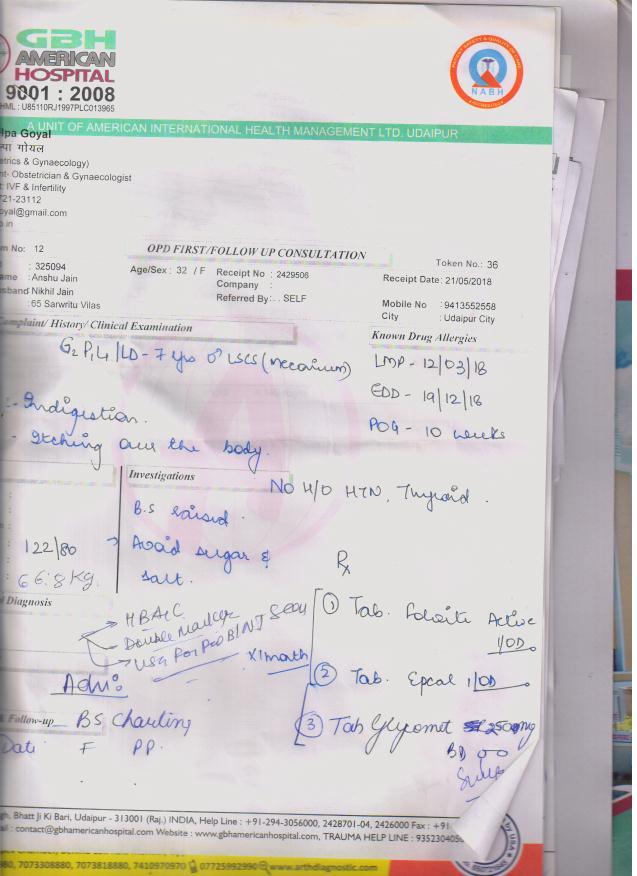 GBH
AMERICAN
HOSPITAL
9001 : 2008
HML : U85110RJ1997PLC013965
NABH
A UNIT OF AMERICAN INTERNATIONAL HEALTH MANAGEMENT LTD. UDAIPUR
lpa Goyal
ल्पा गोयल
etrics & Gynaecology)
nt- Obstetrician & Gynaecologist
t: IVF & Infertility
721-23112
oyal@gmail.com
o in
m No: 12
OPD FIRST/FOLLOW UP CONSULTATION
Token No.: 36
: 325094
Age/Sex : 32 / F
Receipt No : 2429506
Receipt Date: 21/05/2018
ame : Anshu Jain
Company :
usband Nikhil Jain
Referred By: . SELF
Mobile No : 9413552558
:65 Sarwritu Vilas
City : Udaipur City
Complaint/ History/ Clinical Examination
Known Drug Allergies
G2 P1 L1 /LD - 7 yrs ♂ LSCS (Meconium)
LMP - 12/03/18
EDD - 19/12/18
POG - 10 weeks
:- Indigestion.
- Itching over the body.
Investigations
No H/O HTN, Thyroid.
B.S raised.
122/80
→ Avoid sugar &
salt.
66.8 Kg.
Rx
Diagnosis
HBA1C
Double Marker
USG For
x1month
① Tab. Folvite Active
1/OD
② Tab. Epcal 1/OD
Adv:
③ Tab Glycomet 250mg
BD
& Follow-up
BS Charting
Date
F PP.
gh, Bhatt Ji Ki Bari, Udaipur - 313001 (Raj.) INDIA, Help Line : +91-294-3056000, 2428701-04, 2426000 Fax : +91
ail : contact@gbhamericanhospital.com Website : www.gbhamericanhospital.com, TRAUMA HELP LINE : 935230405
980, 7073308880, 7073818880, 7410970970 07725992990 www.arthdiagnostic.com